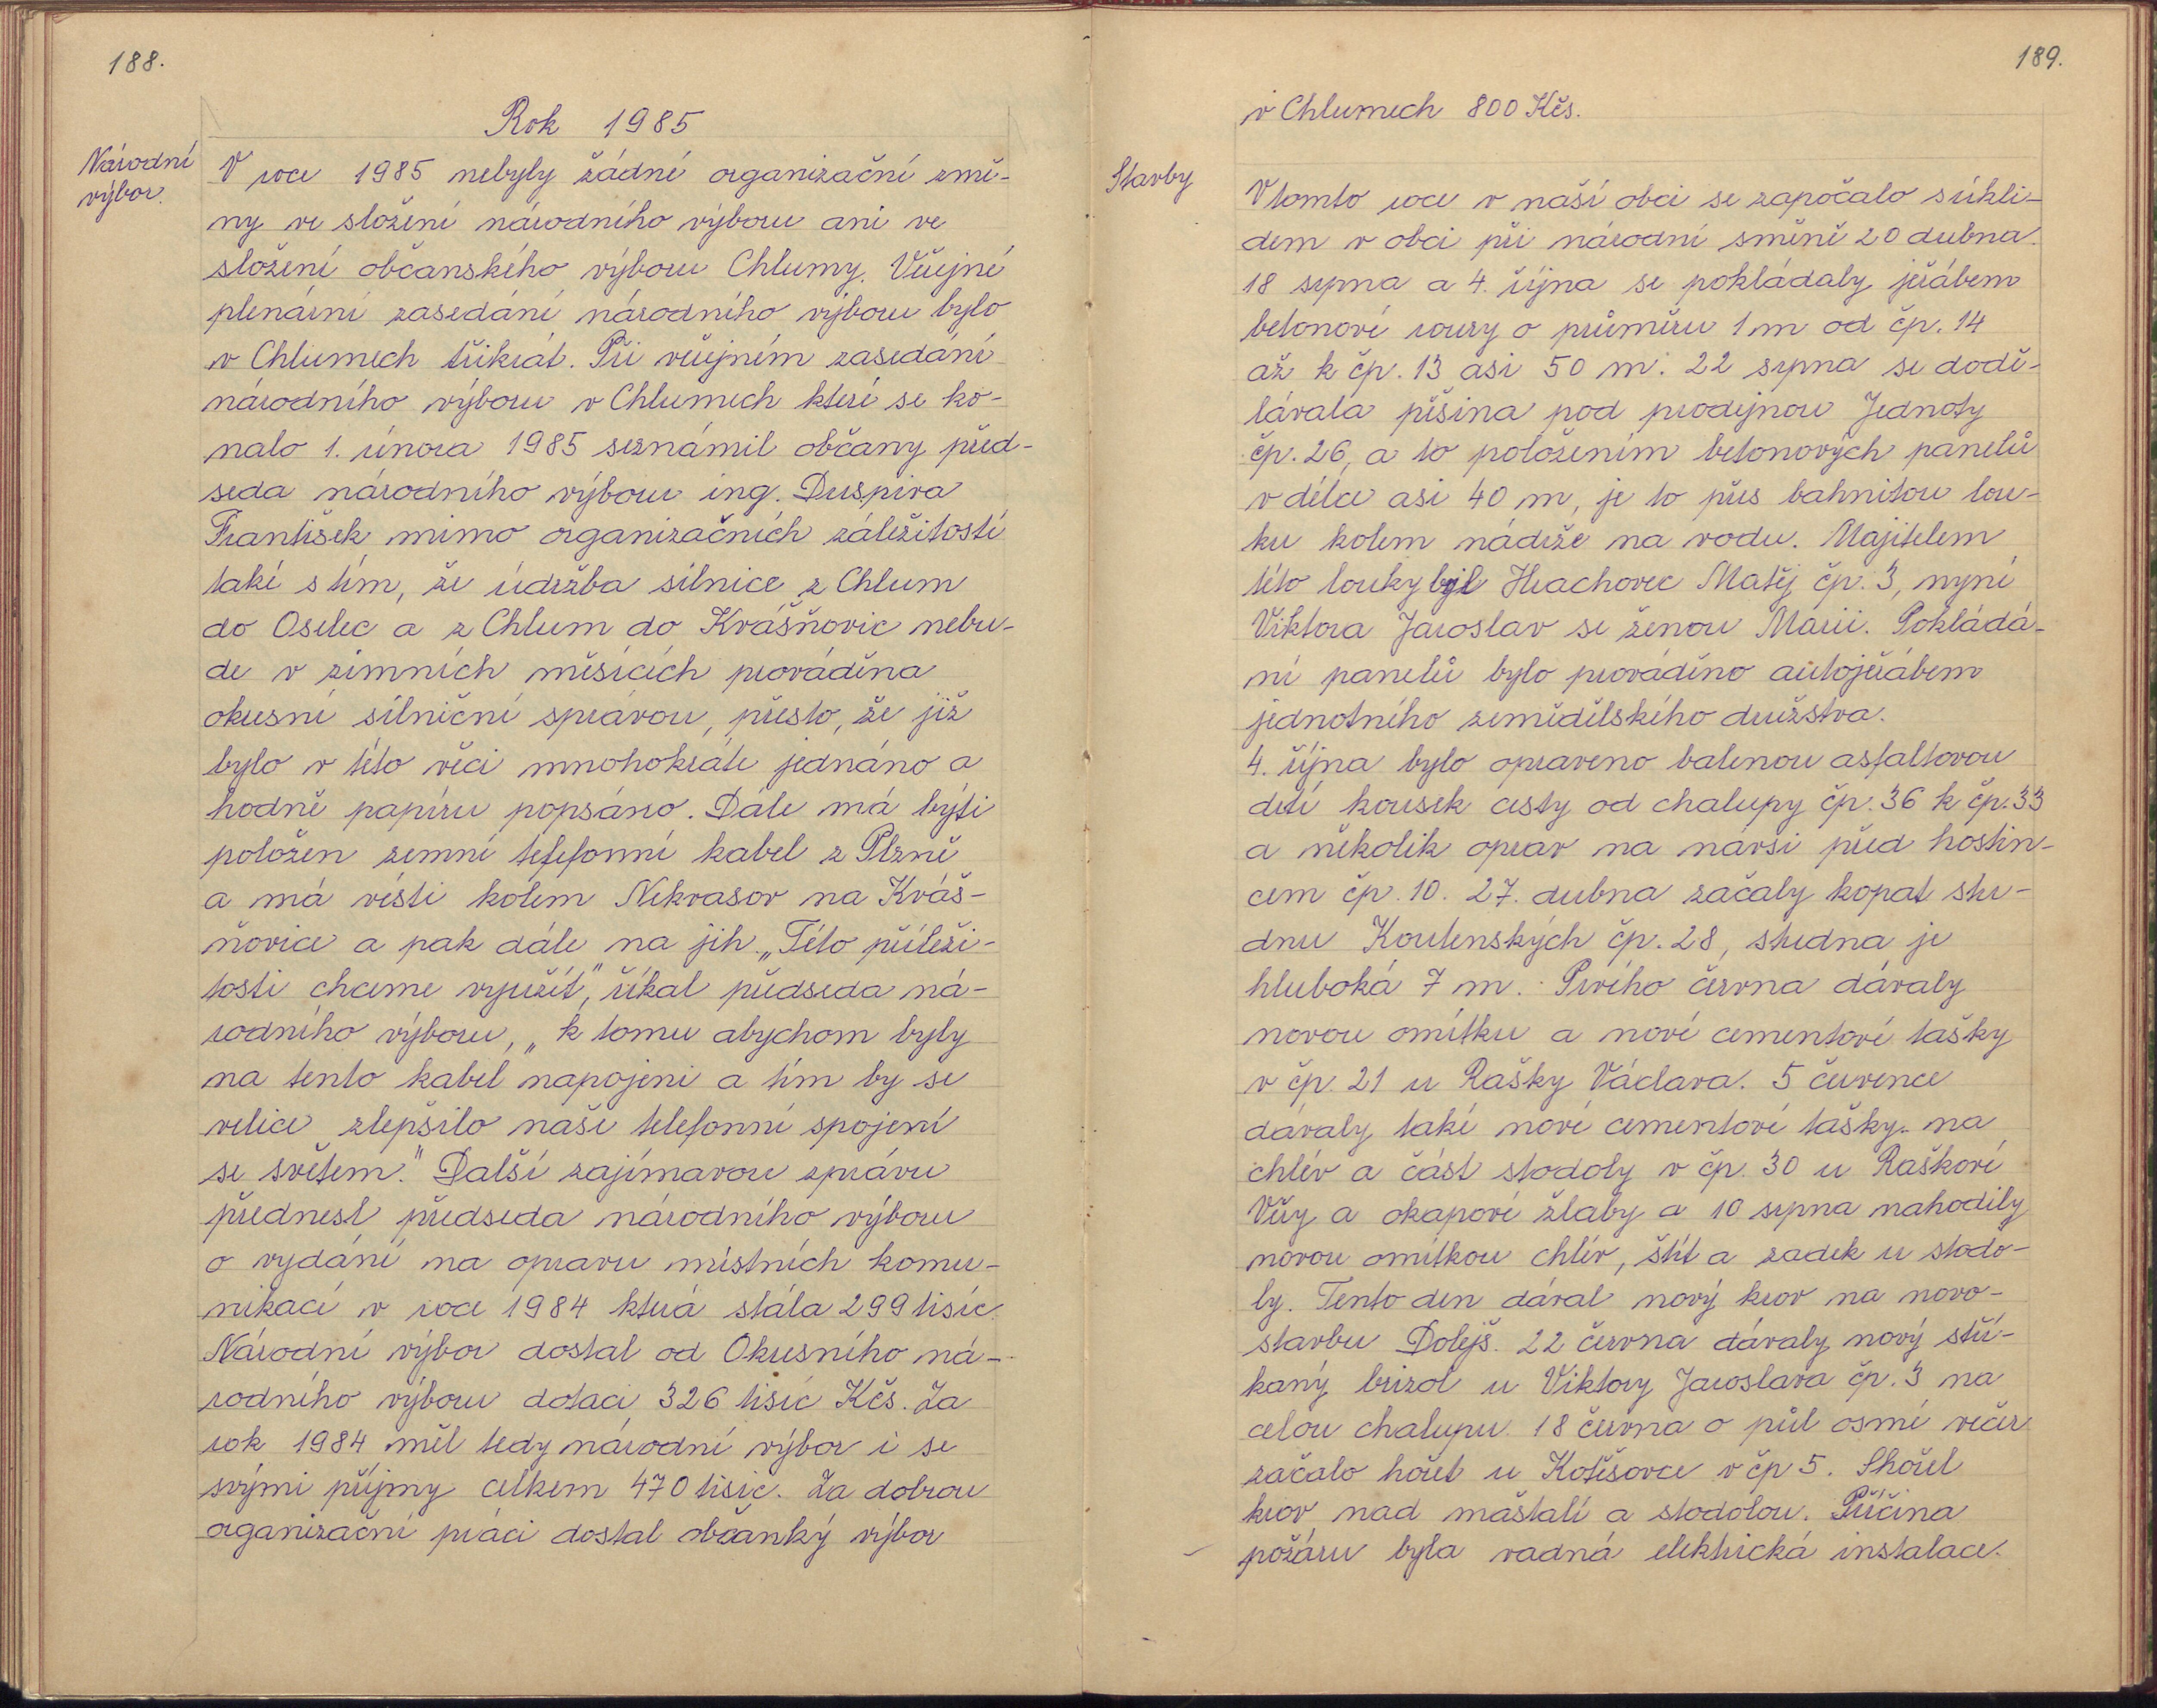 188.
Rok 1985
Národní
výbor.
V roce 1985 nebyly žádné organizační změ-
ny ve složení národního výboru ani ve
složení občanského výboru Chlumy. Veřejné
plenární zasedání národního výboru bylo
v Chlumech třikrát. Při veřejném zasedání
národního výboru v Chlumech které se ko-
nalo 1. února 1985 seznámil občany před-
seda národního výboru ing. Duspiva
František mimo organizačních záležitostí
také s tím, že údržba silnice z Chlum
do Oselec a z Chlum do Kvášňovic nebu-
de v zimních měsících prováděna
okresní silniční správou, přesto, že již
bylo v této věci mnohokráte jednáno a
hodně papíru popsáno. Dále má býti
položen zemní telefonní kabel z Plzně
a má vésti kolem Nekvasov na Kváš-
ňovice a pak dále na jih. „Této příleži-
tosti chceme využít", říkal předseda ná-
rodního výboru, „k tomu abychom byly
na tento kabel napojeni a tím by se
velice zlepšilo naše telefonní spojení
se světem." Další zajímavou zprávu
přednesl předseda národního výboru
o vydání na opravu místních komu-
nikací v roce 1984 která stála 299 tisíc.
Národní výbor dostal od Okresního ná-
rodního výboru dotaci 326 tisíc Kčs. Za
rok 1984 měl tedy národní výbor i se
svými příjmy celkem 470 tisíc. Za dobrou
organizační práci dostal občanký výbor
189.
v Chlumech 800 Kčs.
Stavby
V tomto roce v naší obci se započalo s úkli-
dem v obci při národní směně 20 dubna.
18 srpna a 4. října se pokládaly jeřábem
betonové roury o průměru 1 m od čp. 14
až k čp. 13 asi 50 m. 22 srpna se dodě-
lávala pěšina pod prodejnou Jednoty
čp. 26, a to položením betonových panelů
v délce asi 40 m, je to přes bahnitou lou-
ku kolem nádrže na vodu. Majitelem
této louky byl Hrachovec Matěj čp. 3, nyní
Viktora Jaroslav se ženou Marií. Pokládá-
ní panelů bylo prováděno autojeřábem
jednotného zemědělského družstva.
4. října bylo opraveno balenou asfaltovou
drtí kousek cesty od chalupy čp. 36 k čp. 33
a několik oprav na návsi před hostin-
cem čp. 10. 27. dubna začaly kopat stu-
dnu Koutenských čp. 28, studna je
hluboká 7 m. Prvého června dávaly
novou omítku a nové cementové tašky
v čp. 21 u Rašky Václava. 5 července
dávaly také nové cementové tašky na
chlév a část stodoly v čp. 30 u Raškové
Věry a okapové žlaby a 10 srpna nahodily
novou omítkou chlév, štít a zadek u stodo-
ly. Tento den dával nový krov na novo-
stavbu Dolejš. 22 června dávaly nový stří-
kaný brizol u Viktory Jaroslava čp. 3 na
celou chalupu. 18 června o půl osmé večer
začalo hořet u Kotěšovce v čp 5. Shořel
krov nad maštalí a stodolou. Příčina
požáru byla vadná elektrická instalace.